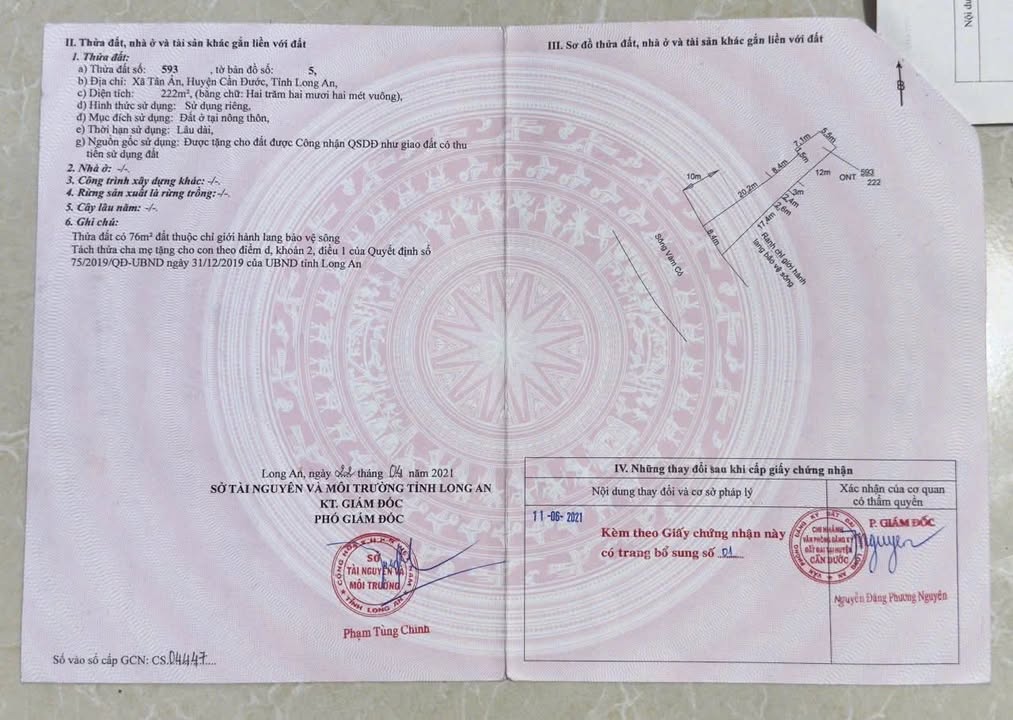 II. Thửa đất, nhà ở và tài sản khác gắn liền với đất
1. Thửa đất:
a) Thửa đất số: 593 , tờ bản đồ số: 5,
b) Địa chỉ: Xã Tân Ân, Huyện Cần Đước, Tỉnh Long An,
c) Diện tích: 222m², (bằng chữ: Hai trăm hai mươi hai mét vuông),
d) Hình thức sử dụng: Sử dụng riêng,
đ) Mục đích sử dụng: Đất ở tại nông thôn,
e) Thời hạn sử dụng: Lâu dài,
g) Nguồn gốc sử dụng: Được tặng cho đất được Công nhận QSDĐ như giao đất có thu
tiền sử dụng đất
2. Nhà ở: -/-.
3. Công trình xây dựng khác: -/-.
4. Rừng sản xuất là rừng trồng: -/-.
5. Cây lâu năm: -/-.
6. Ghi chú:
Thửa đất có 76m² đất thuộc chỉ giới hành lang bảo vệ sông
Tách thửa cha mẹ tặng cho con theo điểm d, khoản 2, điều 1 của Quyết định số
75/2019/QĐ-UBND ngày 31/12/2019 của UBND tỉnh Long An
Long An, ngày 22 tháng 04 năm 2021
SỞ TÀI NGUYÊN VÀ MÔI TRƯỜNG TỈNH LONG AN
KT. GIÁM ĐỐC
PHÓ GIÁM ĐỐC
SỞ
TÀI NGUYÊN VÀ
MÔI TRƯỜNG
TỈNH LONG AN
Phạm Tùng Chinh
Số vào sổ cấp GCN: CS.04447....
III. Sơ đồ thửa đất, nhà ở và tài sản khác gắn liền với đất
B
5,5m
7,1m
1,5m
8,4m
12m
ONT 593
222
10m
20,2m
3m
2,4m
2,6m
17,4m
8,4m
Sông Vàm Cỏ
Ranh chỉ giới hành
lang bảo vệ sông
IV. Những thay đổi sau khi cấp giấy chứng nhận
Nội dung thay đổi và cơ sở pháp lý
Xác nhận của cơ quan
có thẩm quyền
11-06-2021
Kèm theo Giấy chứng nhận này
có trang bổ sung số ..01....
P. GIÁM ĐỐC
CHI NHÁNH
VĂN PHÒNG ĐĂNG KÝ
ĐẤT ĐAI TẠI HUYỆN
CẦN ĐƯỚC
Nguyên
Nguyễn Đăng Phương Nguyên
Nội dụ